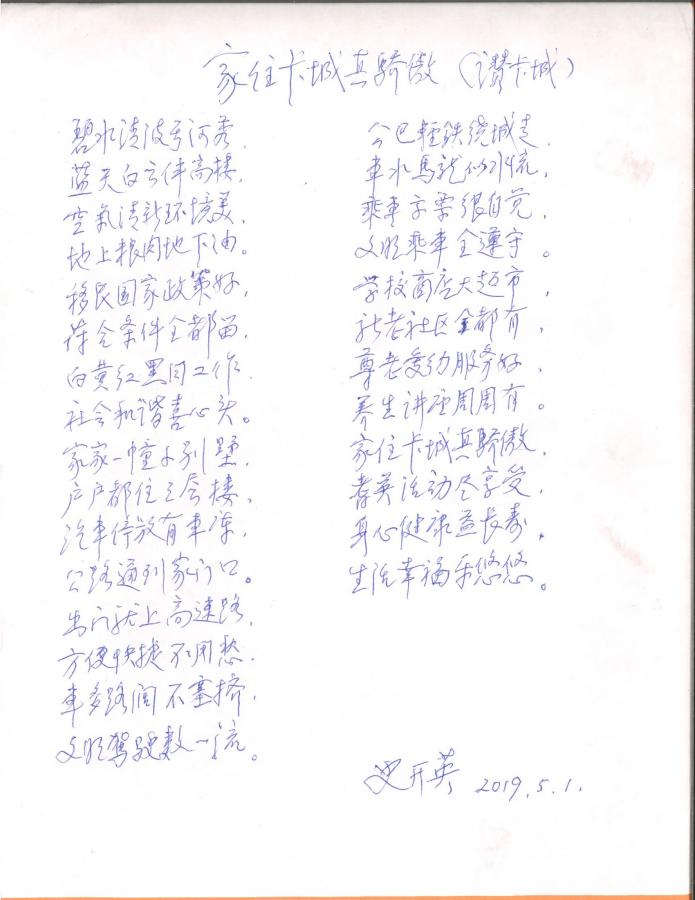 家住卡城真骄傲（讚卡城）
碧水清波弓河秀，
蓝天白云伴高楼，
空氣清新环境美，
地上粮肉地下油。
移民国家政策好，
符合条件全都留，
白黄红黑同工作，
社会和谐喜心头。
家家一幢小别墅，
户户都住三层楼，
汽車停放有車库，
公路通到家门口。
出门就上高速路，
方便快捷不用愁，
車多路阔不塞挤，
文明驾驶数一流。
公巴轻鉄绕城走，
車水馬龍似水流，
乘車主票很自觉，
文明乘車全遵守。
学校商店大超市，
社区全都有，
尊老爱幼服务好，
养生讲座周周有。
家住卡城真骄傲，
耆英活动尽享受，
身心健康益长寿，
生活幸福乐悠悠。
史开英 2019.5.1.